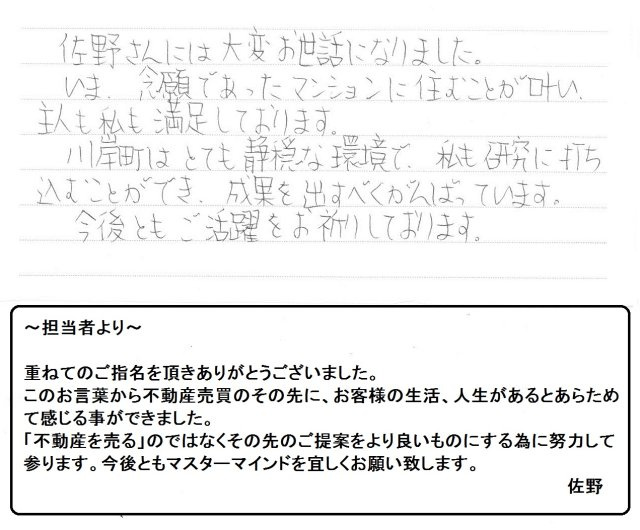 佐野さんには大変お世話になりました。
いま、念願であったマンションに住むことが叶い、
主人も私も満足しております。
川岸町はとても静穏な環境で、私も研究に打ち
込むことができ、成果を出すべくがんばっています。
今後ともご活躍をお祈りしております。
～担当者より～
重ねてのご指名を頂きありがとうございました。
このお言葉から不動産売買のその先に、お客様の生活、人生があるとあらため
て感じる事ができました。
「不動産を売る」のではなくその先のご提案をより良いものにする為に努力して
参ります。今後ともマスターマインドを宜しくお願い致します。
佐野